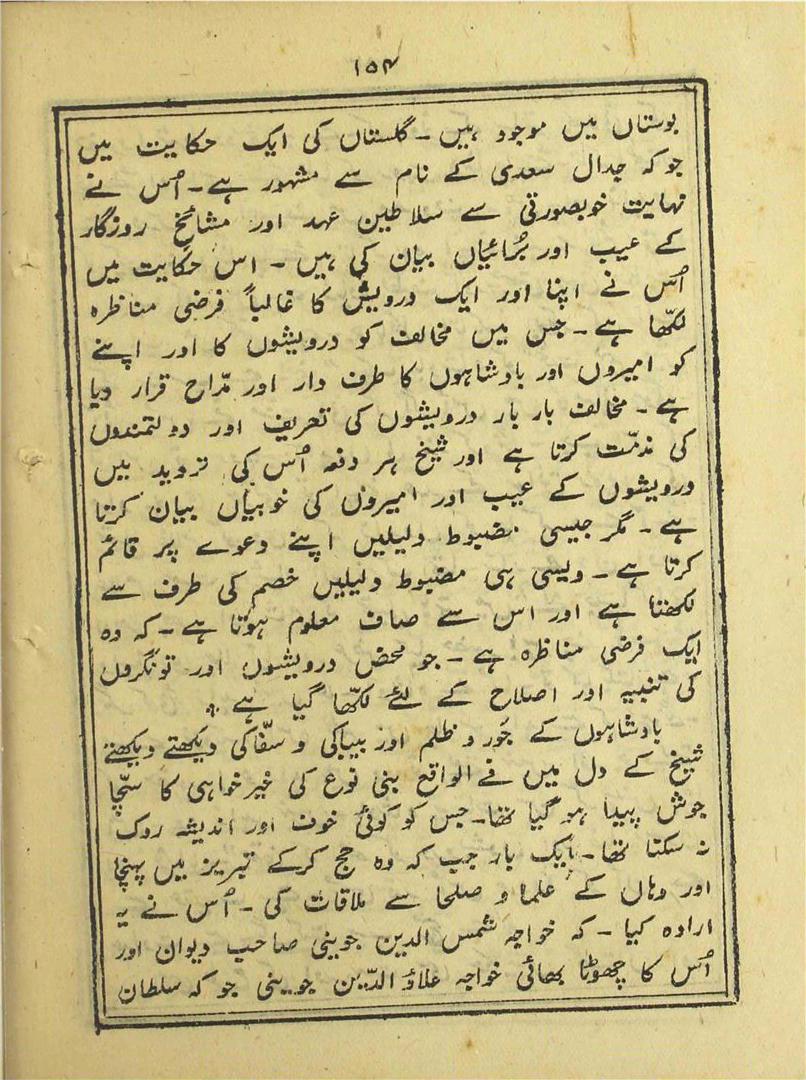 ۱۵۴
بوستاں میں موجود ہیں۔ گلستاں کی ایک حکایت میں
جو کہ جدال سعدی کے نام سے مشہور ہے۔ اُس نے
نہایت خوبصورتی سے سلاطین عہد اور مشائخ روزگار
کے عیب اور بُرائیاں بیان کی ہیں۔ اس حکایت میں
اُس نے اپنا اور ایک درویش کا غالباً فرضی مناظرہ
لکھّا ہے۔ جس میں مخالف کو درویشوں کا اور اپنے
کو امیروں اور بادشاہوں کا طرف دار اور مدّاح قرار دیا
ہے۔ مخالف بار بار درویشوں کی تعریف اور دولتمندوں
کی مذمّت کرتا ہے اور شیخ ہر دفعہ اُس کی تردید میں
درویشوں کے عیب اور امیروں کی خوبیاں بیان کرتا
ہے۔ مگر جیسی مضبوط دلیلیں اپنے دعوے پر قائم
کرتا ہے۔ ویسی ہی مضبوط دلیلیں خصم کی طرف سے
لکھتا ہے اور اس سے صاف معلوم ہوتا ہے۔ کہ وہ
ایک فرضی مناظرہ ہے۔ جو محض درویشوں اور تونگروں
کی تنبیہ اور اصلاح کے لئے لکھّا گیا ہے ؞
بادشاہوں کے جَور و ظلم اور بیباکی و سفّاکی دیکھتے دیکھتے
شیخ کے دل میں فے الواقع بنی نوع کی خیر خواہی کا سچّا
جوش پیدا ہو گیا تھا۔ جس کو کوئی خوف اور اندیشہ روک
نہ سکتا تھا۔ ایک بار جب کہ وہ حج کرکے تبریز میں پہنچا
اور وہاں کے علما و صلحا سے ملاقات کی۔ اُس نے یہ
ارادہ کیا۔ کہ خواجہ شمس الدین جوینی صاحب دیوان اور
اُس کا چھوٹا بھائی خواجہ علاؤ الدّین جوینی جو کہ سلطان